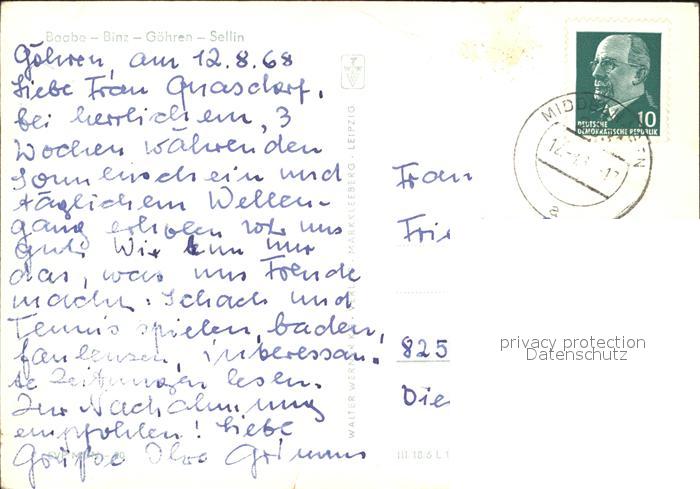 Baabe – Binz – Göhren – Sellin
Göhren, am 12.8.68
Liebe Frau Quasdorf,
bei herrlichem, 3
Wochen währenden
Sonnenschein und
täglichem Wellen-
gang erholen wir uns
gut! Wir tun nur
das, was uns Freude
macht: Schach und
Tennis spielen, baden,
faulenzen, interessan-
te Zeitungen lesen.
Zur Nachahmung
empfohlen! Liebe
Grüße Ihre Grimms
WALTER WERN MARKKLEEBERG - LEIPZIG
III 18/6 L 1
10
DEUTSCHE
DEMOKRATISCHE REPUBLIK
MIDD
Frau
Frie
825
Die
privacy protection
Datenschutz